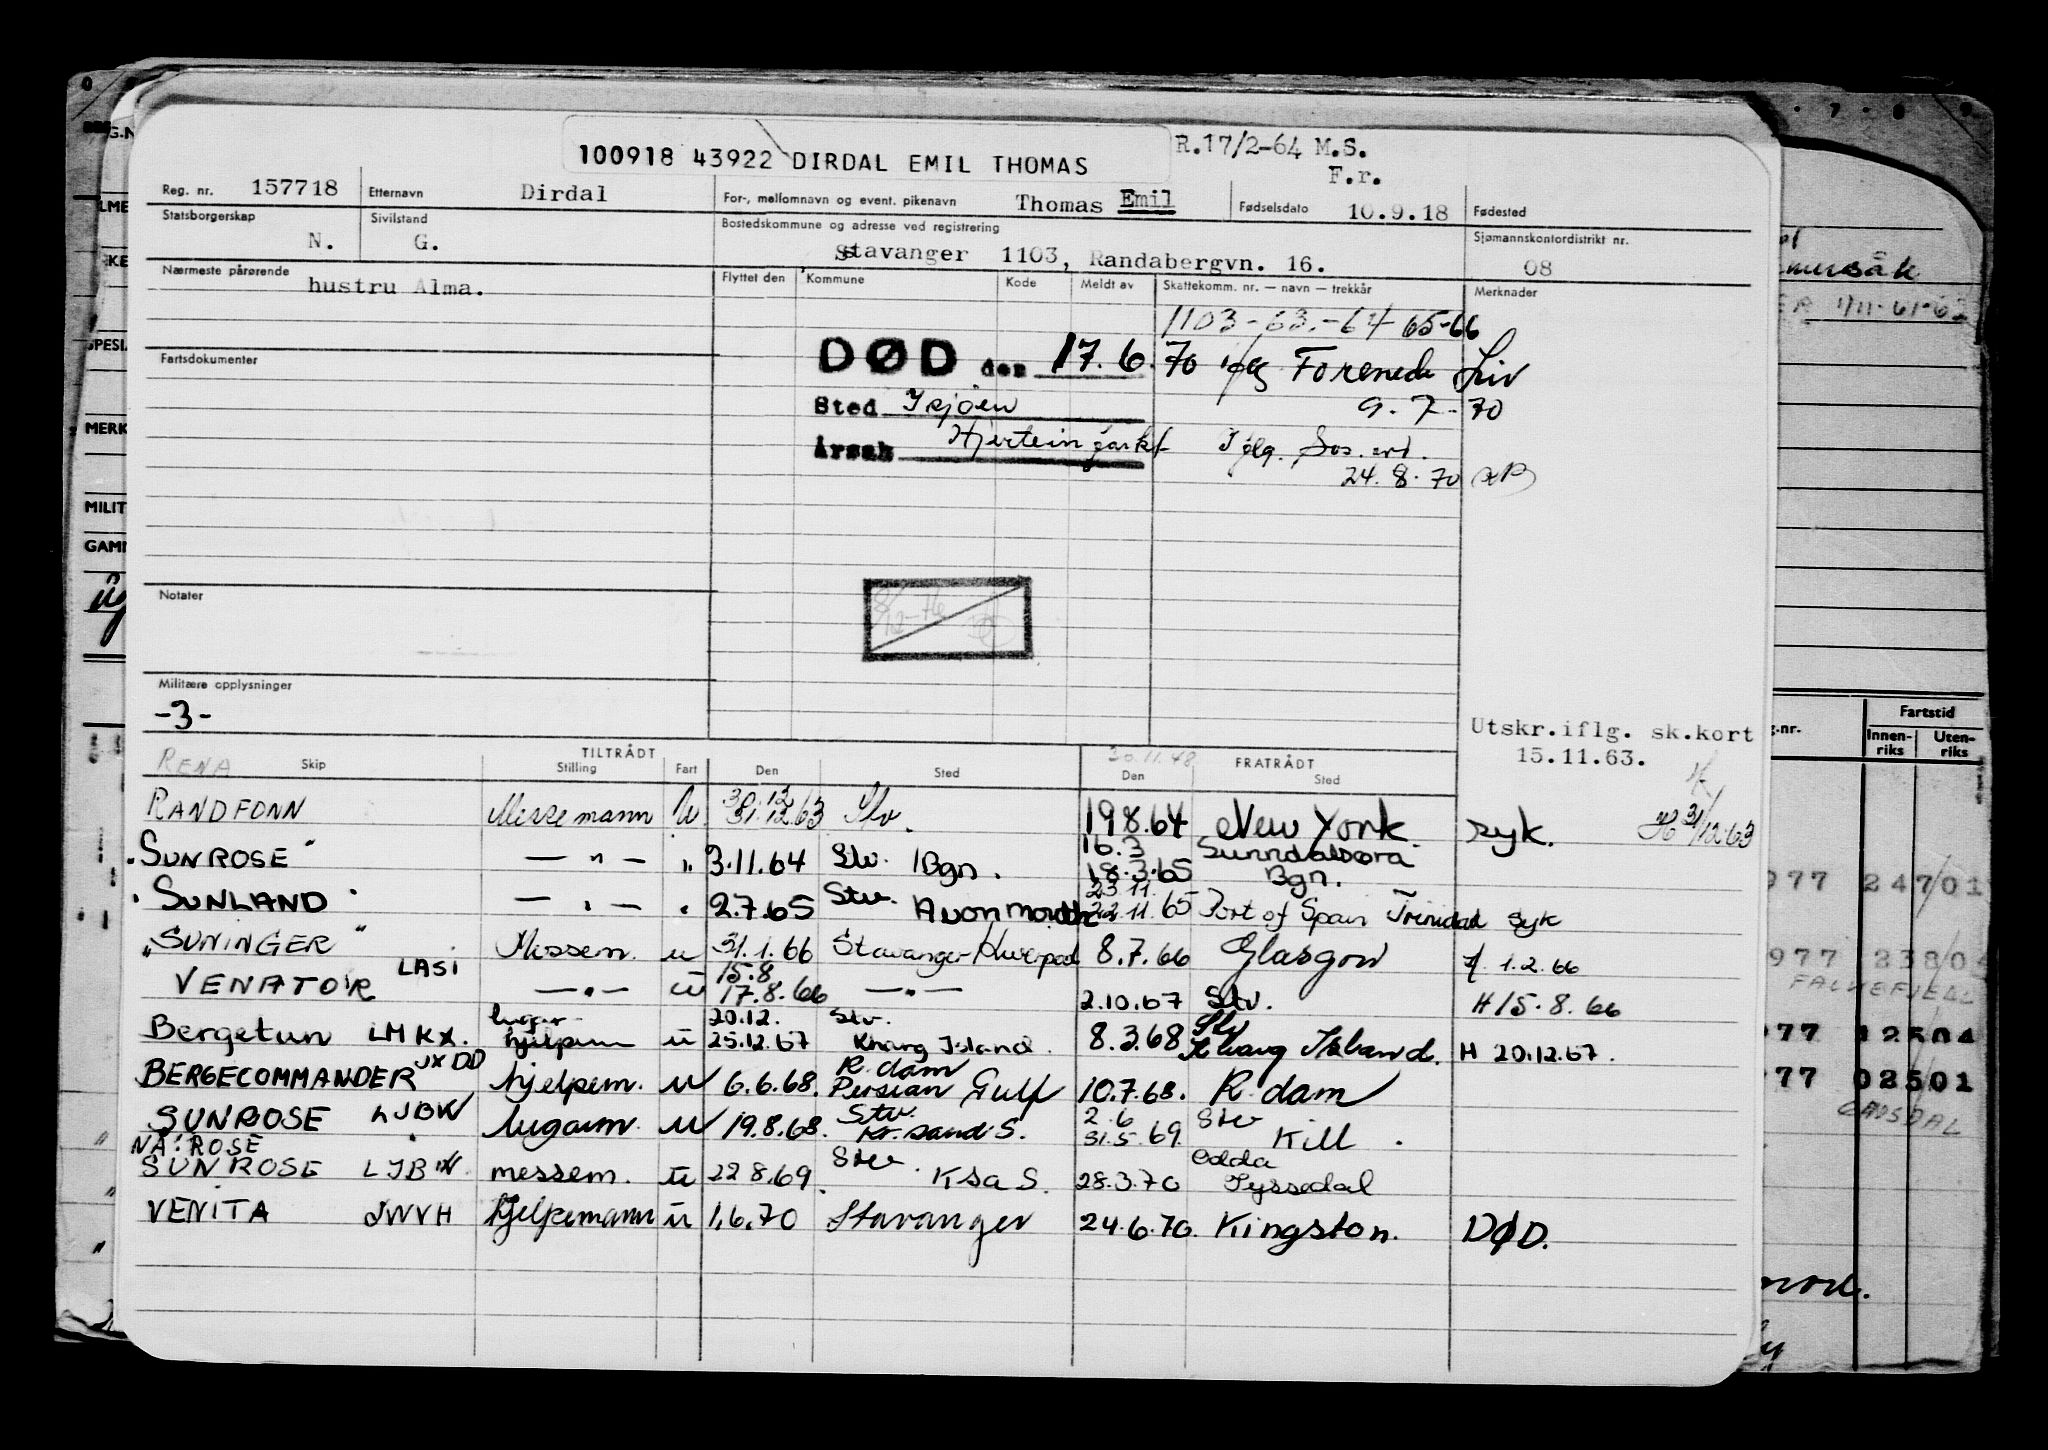 100918 43922 DIRDAL EMIL THOMAS
R.17/2-64 M.S.
F.r.
Reg. nr. 157718 Etternavn Dirdal For-, mellomnavn og event. pikenavn Thomas Emil Fødselsdato 10.9.18 Fødested
Statsborgerskap N. Sivilstand G. Bostedskommune og adresse ved registrering Stavanger 1103, Randabergvn. 16. Sjømannskontordistrikt nr. 08
Nærmeste pårørende hustru Alma. Flyttet den Kommune Kode Meldt av Skattekomm. nr. — navn — trekkår Merknader
1103-63.-64-65-66
Fartsdokumenter
DØD den 17.6.70 iflg Forenede Liv
Sted I sjøen 9.7.-70
Årsak Hjerteinfarkt Iflg. Sos. avd.
24.8.70
Notater
8/12-76
Militære opplysninger
-3-
Utskr.iflg. sk.kort
15.11.63.
TILTRÅDT FRATRÅDT
RENA Skip Stilling Fart Den Sted 30.11.48 Den Sted
30.12
RANDFONN Messemann U 31.12.63 Stv. 19.8.64 New York. syk. H 31/12.63
16.3 Sunndalsøra
"SUNROSE" — " — " 3.11.64 Stv. Bgn. 18.3.65 Bgn.
Stv. 23.11.
"SUNLAND" — " — " 2.7.65 Avonmouth 22.11.65 Port of Spain Trinidad syk
"SUNINGER" Messem. u 31.1.66 Stavanger-Liverpool 8.7.66 Glasgow H 1.2.66
15.8
VENATOR LASI — " — u 17.8.66 — " — 2.10.67 Stv. H 15.8.66
lugar- 20.12. Stv. Stv
Bergetun LMKX. hjelpem u 25.12.67 Kharg Island. 8.3.68 Kharg Island. H 20.12.67.
R.dam
BERGECOMMANDER JXDD hjelpem. u 6.6.68. Persian Gulf 10.7.68. R.dam
Stv. 2.6 Stv
SUNROSE LJBW lugarm. u 19.8.68. Kr.sand S. 31.5.69. Kill.
NÅ: ROSE Stv. Odda
SUNROSE LJBW. messem. u 22.8.69. Ksa S. 28.3.70 Tyssedal
VENITA JWVH hjelpemann u 1.6.70 Stavanger 24.6.70. Kingston. DØD.
Fartstid
Innen-riks Uten-riks
977 247/01
977 238/0
FALKEFJELL
977 12504
77 02501
GAUSDAL